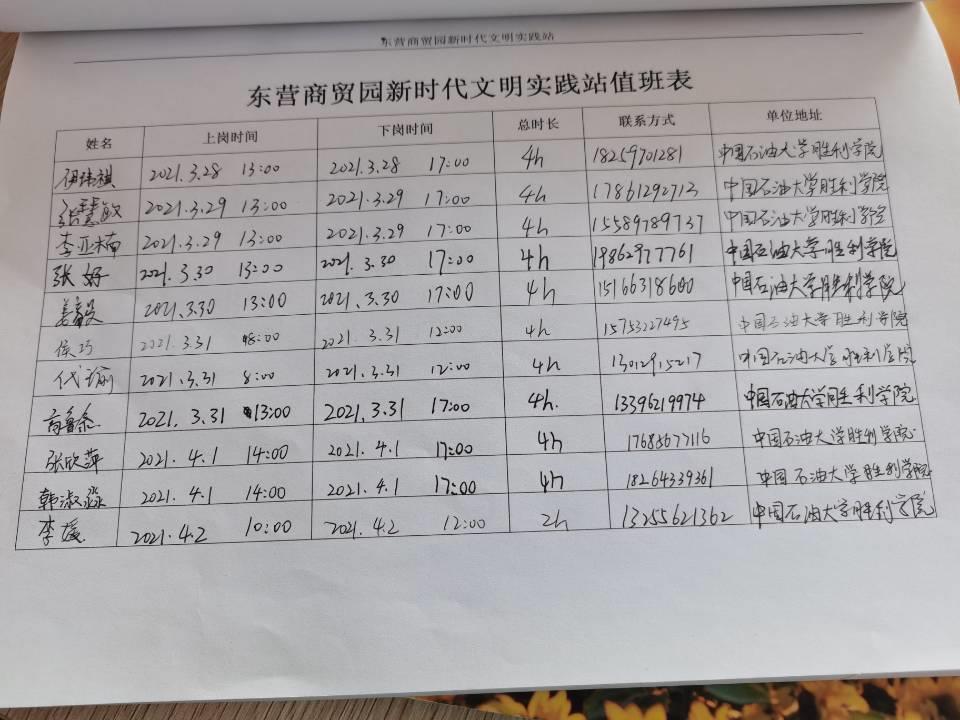 东营商贸园新时代文明实践站
东营商贸园新时代文明实践站值班表
姓名 上岗时间 下岗时间 总时长 联系方式 单位地址
伊玮祺 2021.3.28 13:00 2021.3.28 17:00 4h 18259701281 中国石油大学胜利学院
张慧敏 2021.3.29 13:00 2021.3.29 17:00 4h 17861292713 中国石油大学胜利学院
李亚楠 2021.3.29 13:00 2021.3.29 17:00 4h 15589789737 中国石油大学胜利学院
张好 2021.3.30 13:00 2021.3.30 17:00 4h 19862977761 中国石油大学胜利学院
姜毅 2021.3.30 13:00 2021.3.30 17:00 4h 15166318600 中国石油大学胜利学院
侯巧 2021.3.31 8:00 2021.3.31 12:00 4h 15753227495 中国石油大学胜利学院
代瑜 2021.3.31 8:00 2021.3.31 12:00 4h 13012915217 中国石油大学胜利学院
2021.3.31 13:00 2021.3.31 17:00 4h. 13396219974 中国石油大学胜利学院
张欣萍 2021.4.1 14:00 2021.4.1 17:00 4h 17685677116 中国石油大学胜利学院
韩淑淼 2021.4.1 14:00 2021.4.1 17:00 4h 18264339361 中国石油大学胜利学院
李媛 2021.4.2 10:00 2021.4.2 12:00 2h 13255621362 中国石油大学胜利学院